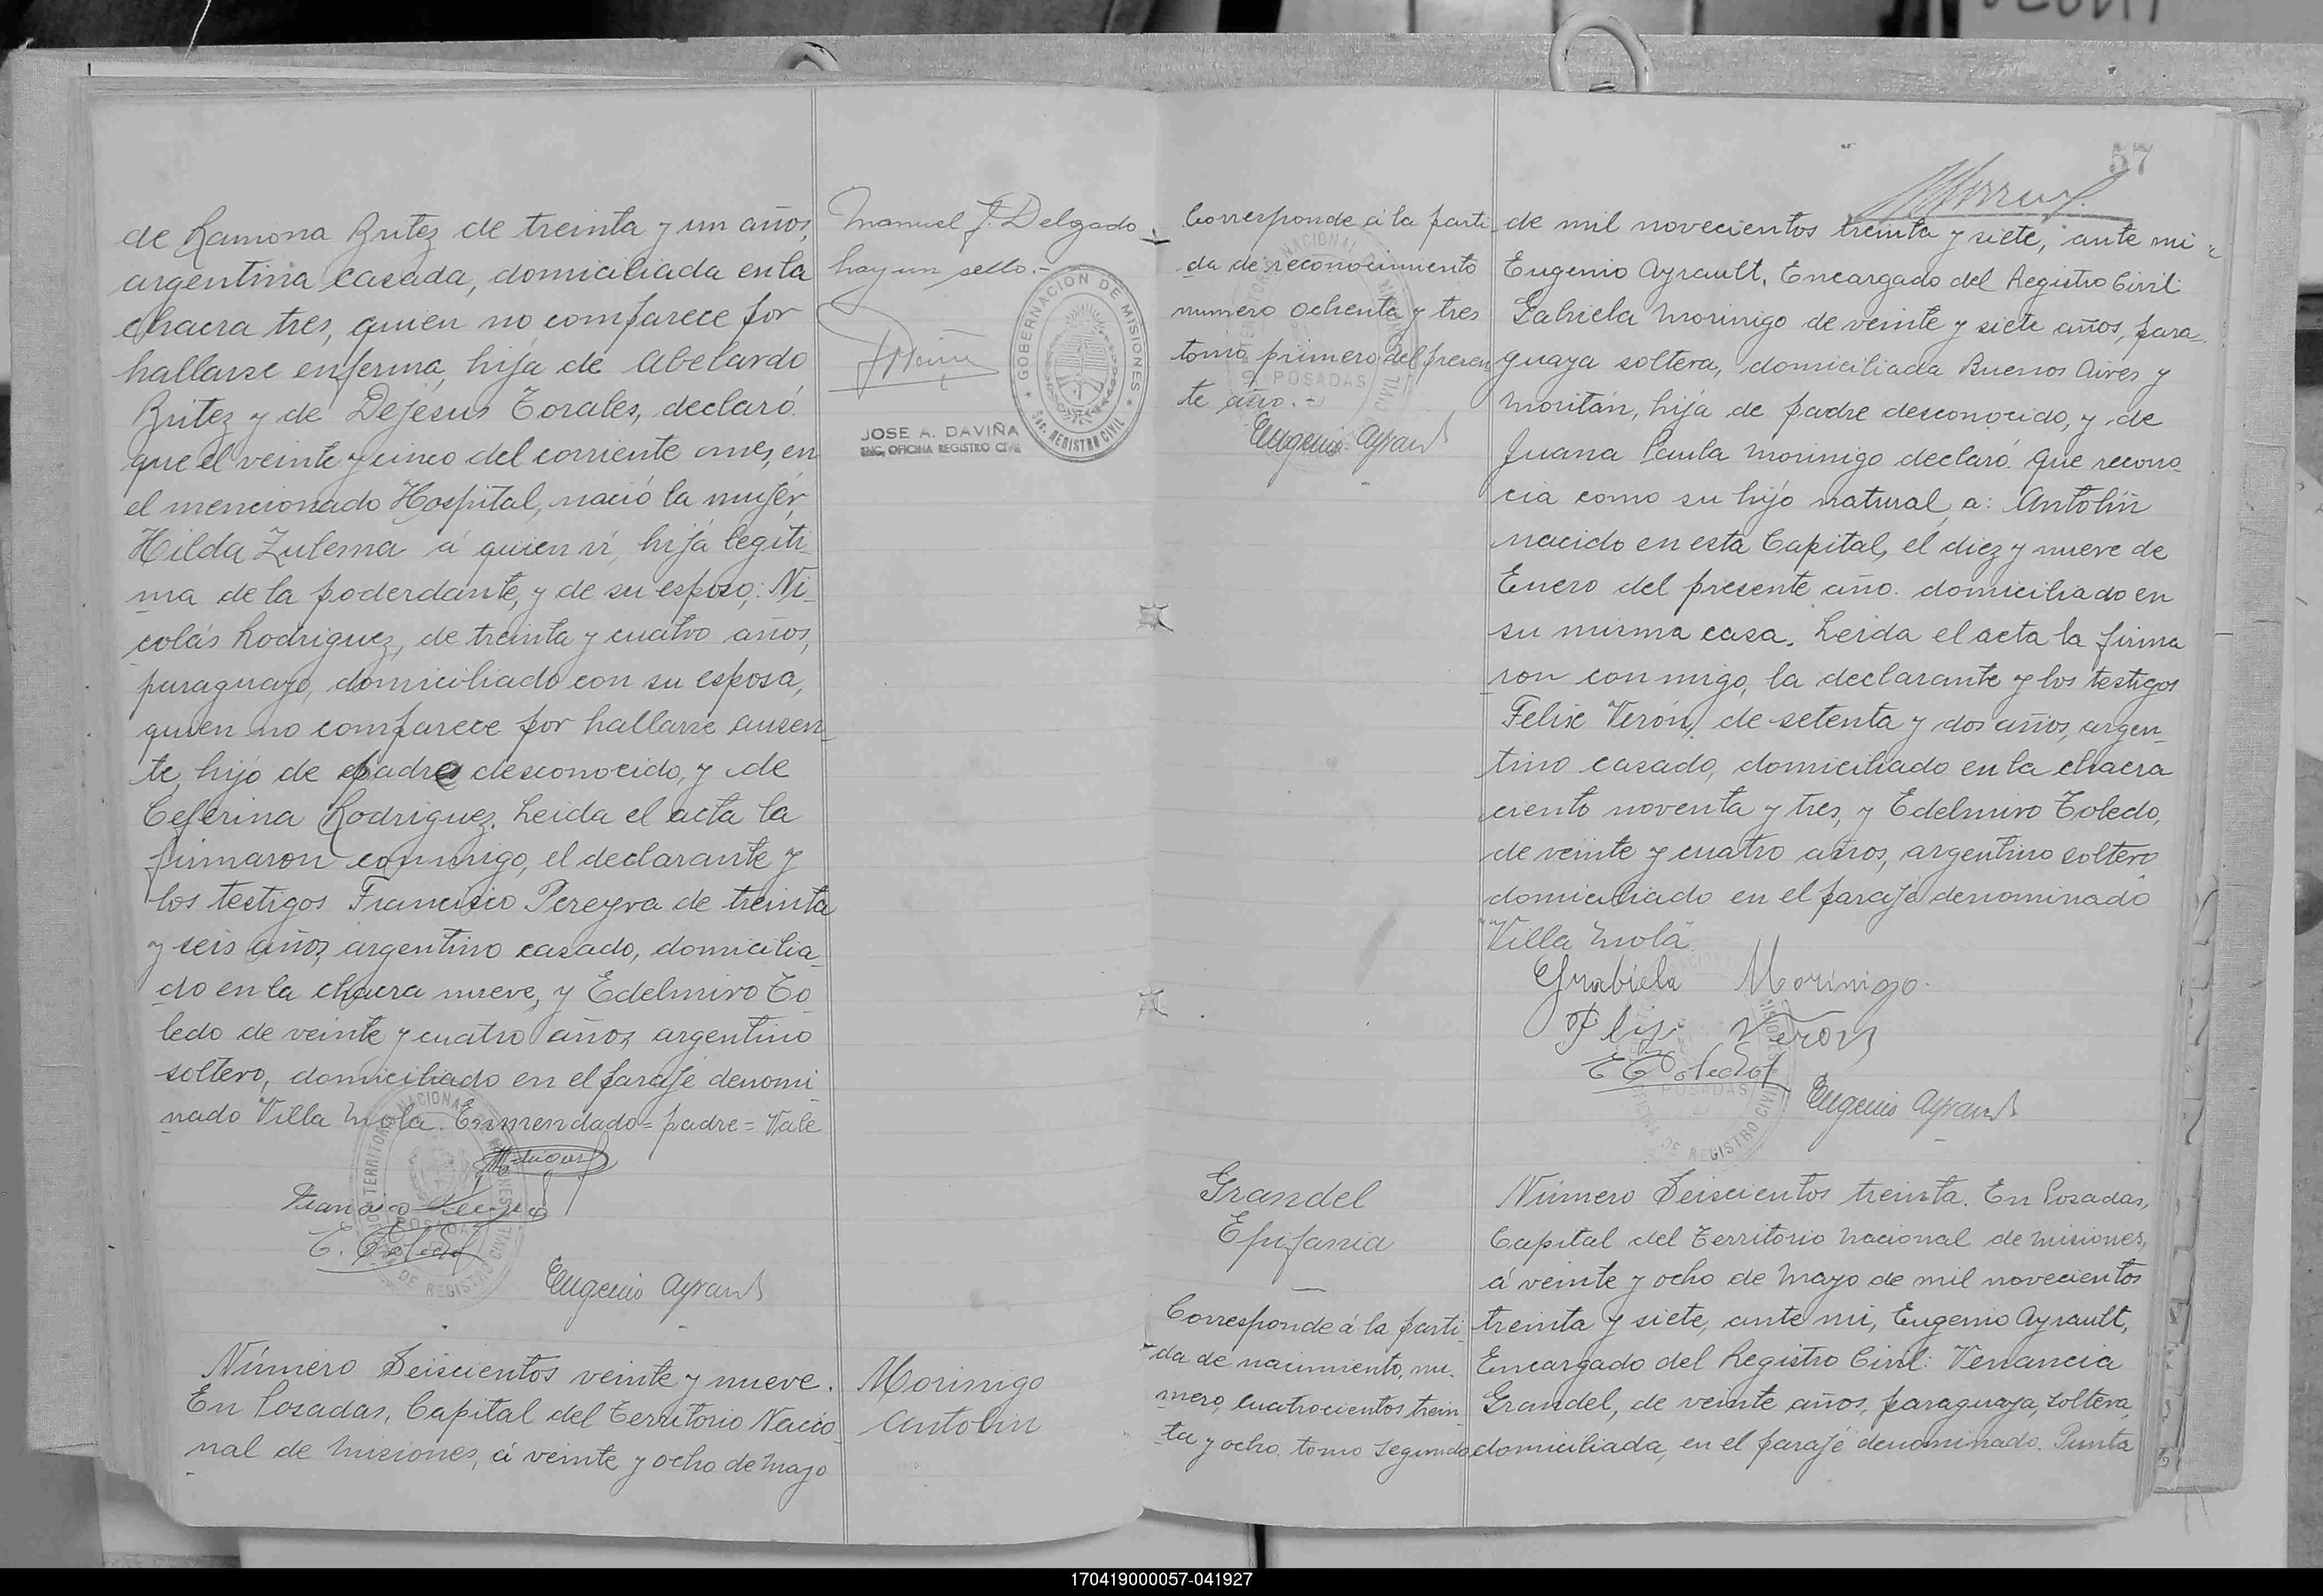 de Ramona Britez de treinta y un años,
argentina casada, domiciliada en la
chacra tres, quien no comparece por
hallarse enferma, hija de Abelardo
Britez y de Dejesus Torales, declaró
que el veinte y cinco del corriente mes, en
el mencionado Hospital, nació la mujer,
Hilda Zulema á quien ví, hija legiti-
ma de la poderdante, y de su esposo; Ni-
colás Rodriguez, de treinta y cuatro años,
paraguayo, domiciliado con su esposa,
quien no comparece por hallarse ausen-
te, hijo de padre desconocido, y de
Ceferina Rodriguez. Leida el acta la
firmaron conmigo, el declarante y
los testigos Francisco Pereyra de treinta
y seis años, argentino casado, domicilia-
do en la chacra nueve, y Edelmiro To-
ledo de veinte y cuatro años, argentino
soltero, domiciliado en el paraje denomi-
nado Villa Mola. Enmendado = padre = Vale
TERRITORIO NACIONAL MISIONES
POSADAS
DE REGISTRO CIVIL
Francisco
E. Toledo
Eugenio Ayrault
Número Seiscientos veinte y nueve.
En Posadas, Capital del Territorio Nacio-
nal de Misiones, á veinte y ocho de Mayo
Manuel J. Delgado
hay un sello.-
GOBERNACION DE MISIONES
Sec. REGISTRO CIVIL
JOSE A. DAVIÑA
ENC. OFICINA REGISTRO CIVIL
Morinigo
Antolin
57
Corresponde á la parti-
da de reconocimiento
numero ochenta y tres
tomo primero del presen-
te año.-
POSADAS
Eugenio Ayrault
de mil novecientos treinta y siete, ante mi
Eugenio Ayrault, Encargado del Registro Civil:
Gabriela Morinigo de veinte y siete años, para-
guaya soltera, domiciliada Buenos Aires y
Moritán, hija de padre desconocido, y de
Juana Paula Morinigo declaró: que recono-
cia como su hijo natural, a: Antolin
nacido en esta Capital, el diez y nueve de
Enero del presente año. domiciliado en
su misma casa. Leida el acta la firma
ron conmigo, la declarante y los testigos
Felix Verón, de setenta y dos años, argen-
tino casado, domiciliado en la chacra
ciento noventa y tres, y Edelmiro Toledo,
de veinte y cuatro años, argentino soltero
domiciliado en el paraje denominado
"Villa Mola".
Grabiela Morinigo.
Felix Veron
E Toledo
POSADAS
DE REGISTRO CIVIL
Eugenio Ayrault
Grandel
Epifania
Corresponde á la parti-
da de nacimiento, nu-
mero, cuatrocientos trein-
ta y ocho. tomo segundo
Número Seiscientos treinta. En Posadas,
Capital del Territorio Nacional de Misiones,
á veinte y ocho de Mayo de mil novecientos
treinta y siete, ante mi, Eugenio Ayrault,
Encargado del Registro Civil: Venancia
Grandel, de veinte años, paraguaya, soltera,
domiciliada, en el paraje denominado. Punta
170419000057-041927